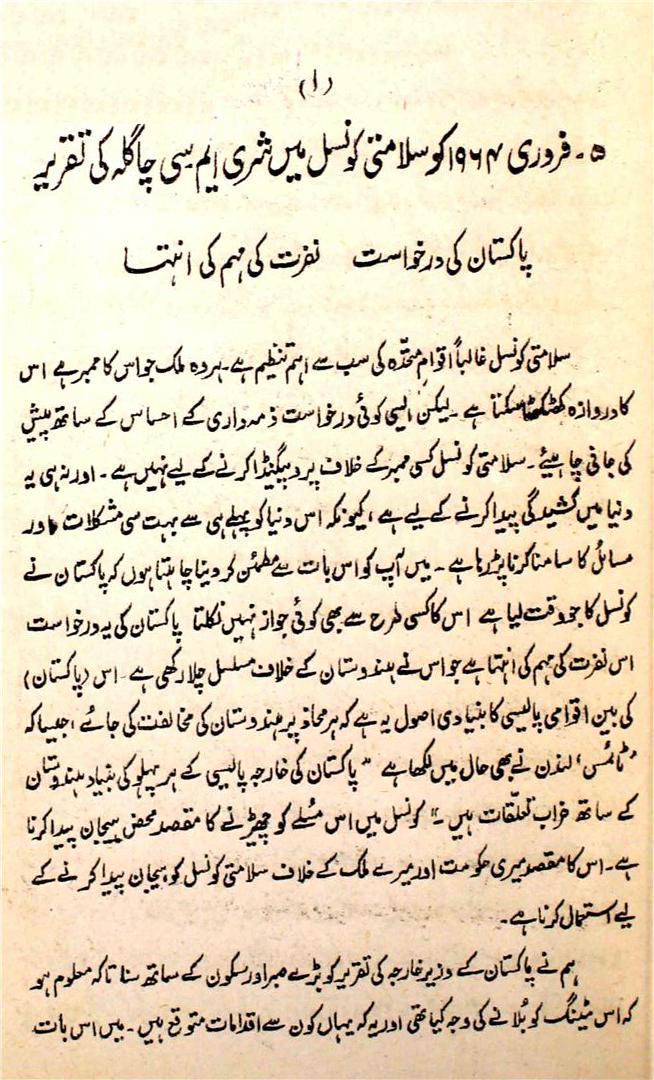 (۱)
۵۔ فروری ۱۹۶۴ کو سلامتی کونسل میں شری ایم سی چاگلہ کی تقریر
پاکستان کی درخواست نفرت کی مہم کی انتہا
سلامتی کونسل غالباً اقوام متحدہ کی سب سے اہم تنظیم ہے۔ ہر وہ ملک جو اس کا ممبر ہے اس
کا دروازہ کھٹکھٹا سکتا ہے۔ لیکن ایسی کوئی درخواست ذمہ داری کے احساس کے ساتھ پیش
کی جانی چاہیئے۔ سلامتی کونسل کسی ممبر کے خلاف پروپیگنڈا کرنے کے لیے نہیں ہے۔ اور نہ ہی یہ
دنیا میں کشیدگی پیدا کرنے کے لیے ہے، کیونکہ اس دنیا کو پہلے ہی سے بہت سی مشکلات اور
مسائل کا سامنا کرنا پڑ رہا ہے۔ میں آپ کو اس بات سے مطمئن کر دینا چاہتا ہوں کہ پاکستان نے
کونسل کا جو وقت لیا ہے اس کا کسی طرح سے بھی کوئی جواز نہیں نکلتا پاکستان کی یہ درخواست
اس نفرت کی مہم کی انتہا ہے جو اس نے ہندوستان کے خلاف مسلسل چلا رکھی ہے۔ اس (پاکستان)
کی بین اقوامی پالیسی کا بنیادی اصول یہ ہے کہ ہر محاذ پر ہندوستان کی مخالفت کی جائے، جیسا کہ
'ٹائمس' لندن نے بھی حال میں لکھا ہے "پاکستان کی خارجہ پالیسی کے ہر پہلو کی بنیاد ہندوستان
کے ساتھ خراب تعلّقات ہیں۔" کونسل میں اس مسٔلے کو چھیڑنے کا مقصد محض ہیجان پیدا کرنا
ہے۔ اس کا مقصد میری حکومت اور میرے ملک کے خلاف سلامتی کونسل کو ہیجان پیدا کرنے کے
لیے استعمال کرنا ہے۔
ہم نے پاکستان کے وزیر خارجہ کی تقریر کو بڑے صبر اور سکون کے ساتھ سنا تاکہ معلوم ہو
کہ اس میٹنگ کو بُلانے کی وجہ کیا تھی اور یہ کہ یہاں کون سے اقدامات متوقع ہیں۔ میں اس بات